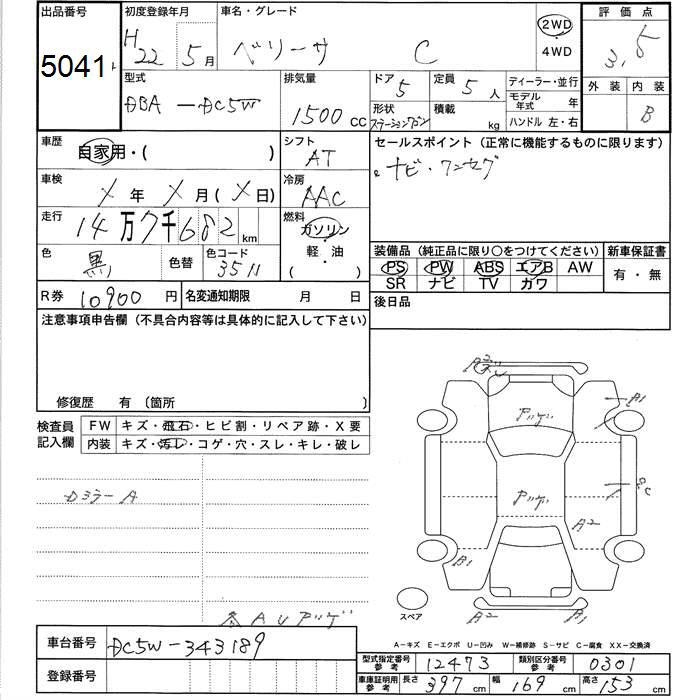 出品番号 初度登録年月 車名・グレード 評価点
5041 H22 5月 ベリーサ C 2WD・4WD 3.5
型式 排気量 ドア 5 定員 5人 ディーラー・並行 外装 内装
DBA-DC5W 1500cc 形状 ステーションワゴン 積載 kg モデル年式 年 B
ハンドル 左・右
車歴 自家用・( ) シフト AT セールスポイント（正常に機能するものに限ります）
ナビ・ワンセグ
車検 X年 X月(X日) 冷房 AAC
走行 14万7千682km 燃料 ガソリン・軽・油 ( )
色 黒 色替 色コード 3511 装備品（純正品に限り○をつけてください） 新車保証書
PS PW ABS エアB AW 有・無
SR ナビ TV カワ
R券 10900円 名変通知期限 月 日 後日品
注意事項申告欄（不具合内容等は具体的に記入して下さい）
修復歴 有 〔箇所 〕
検査員記入欄 FW キズ・飛石・ヒビ割・リペア跡・X要
内装 キズ・汚レ・コゲ・穴・スレ・キレ・破レ
Dミラー A
A1
アッゲ
アッゲ
A2
B1
スペア
A2 B1
AUアッゲ
A-キズ E-エクボ U-凹み W-補修跡 S-サビ C-腐食 XX-交換済
車台番号 DC5W-343189
型式指定番号参考 12473 類別区分番号参考 0301
登録番号
車庫証明用参考 長さ 397cm 幅 169cm 高さ 153cm